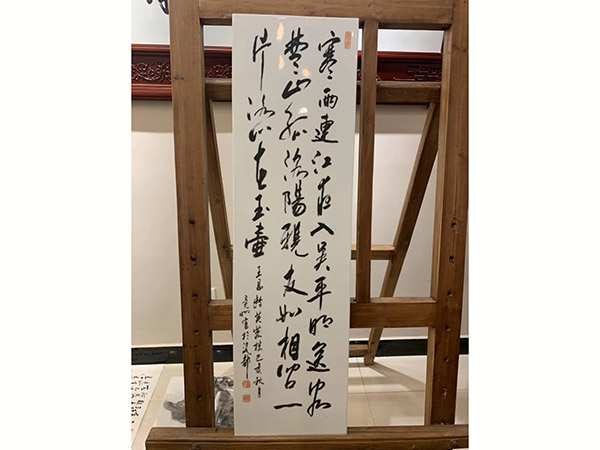 寒雨連江夜入吴平明送客
楚山孤洛陽親友如相问一
片冰心在玉壺
王昌龄芙蓉樓己亥秋月
書於瓷都